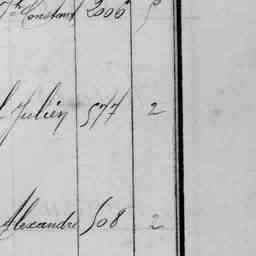 Constant 2006
Julien 577 2
Alexandre 508 2